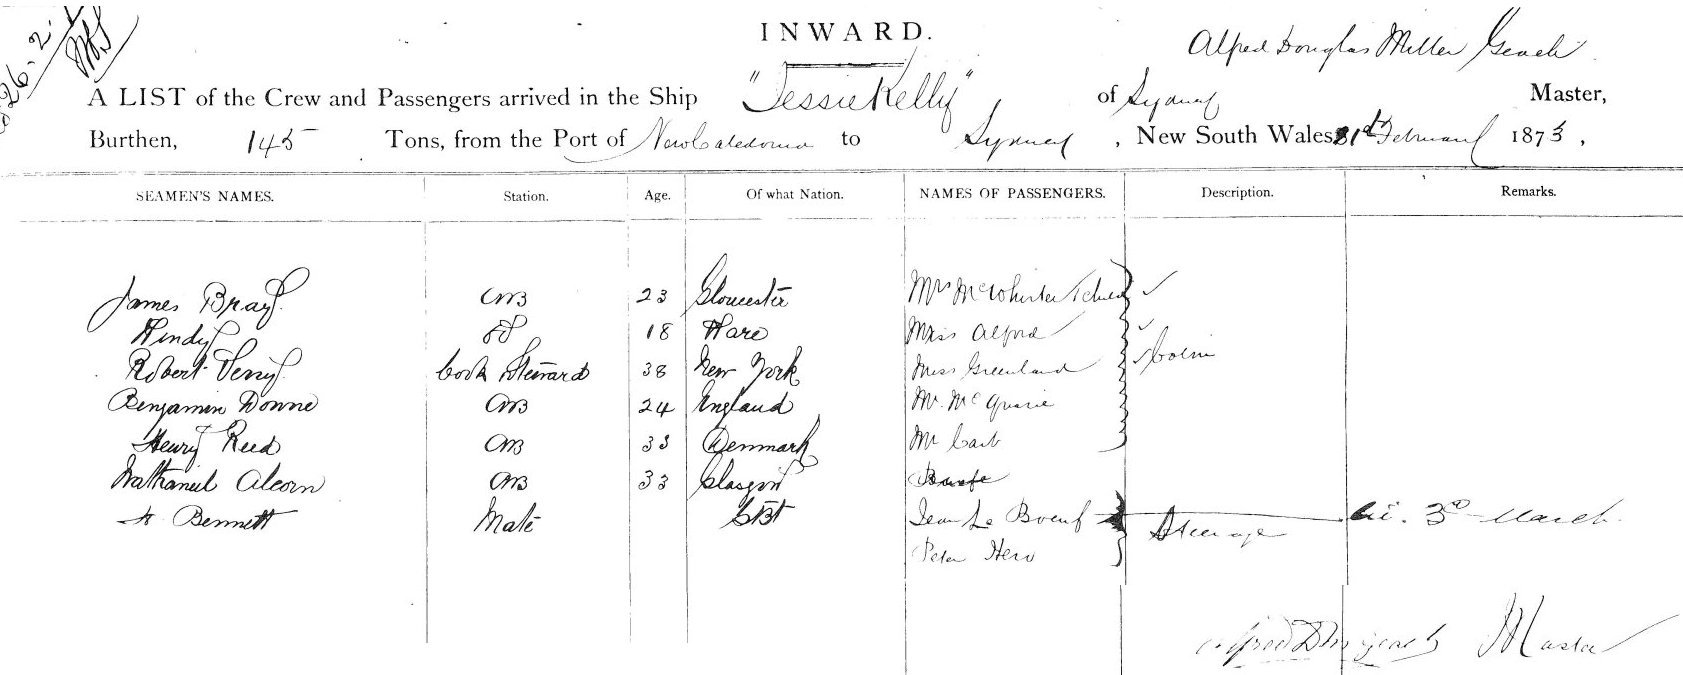 26.2.
INWARD.
Alfred Douglas Miller Geach
A LIST of the Crew and Passengers arrived in the Ship "Jessie Kelly" of Sydney Master,
Burthen, 145 Tons, from the Port of New Caledonia to Sydney, New South Wales 21st February 1873,
SEAMEN'S NAMES. Station. Age. Of what Nation. NAMES OF PASSENGERS. Description. Remarks.
James Bray AB 23 Gloucester Mrs McWhirter
18 Miss Alford
Robert Cook Steward 38 New York Miss Greenland Cabin
Benjamin Donne AB 24 England Mr. McQuarie
Henry Reed AB 33 Denmark Mr
Nathaniel Alcorn AB 33 Glasgow
Bennett Mate GBt Jean Le Boeuf Steerage 3rd March
Peter Hero
Master